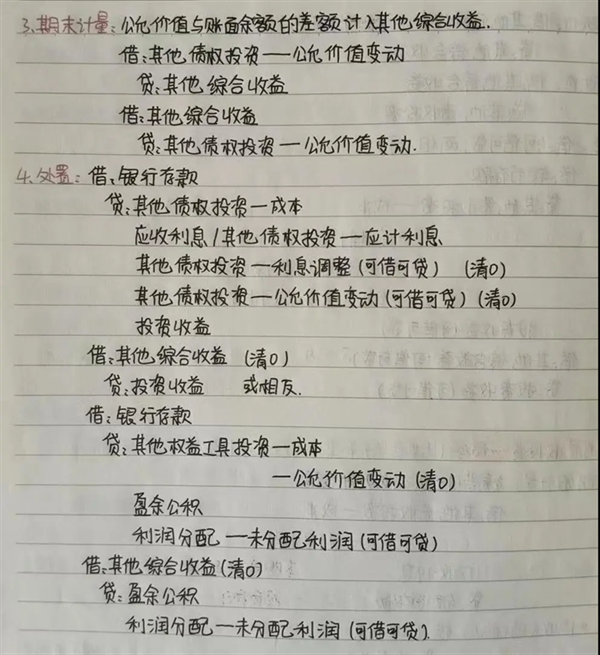 3.期末计量：公允价值与账面余额的差额计入其他综合收益.
借：其他债权投资—公允价值变动
贷：其他综合收益
借：其他综合收益
贷：其他债权投资—公允价值变动.
4.处置：借：银行存款
贷：其他债权投资—成本
应收利息/其他债权投资—应计利息
其他债权投资—利息调整(可借可贷) (清0)
其他债权投资—公允价值变动(可借可贷)(清0)
投资收益
借：其他综合收益 (清0)
贷：投资收益 或相反.
借：银行存款
贷：其他权益工具投资—成本
—公允价值变动(清0)
盈余公积
利润分配—未分配利润(可借可贷)
借：其他综合收益(清0)
贷：盈余公积
利润分配—未分配利润(可借可贷).